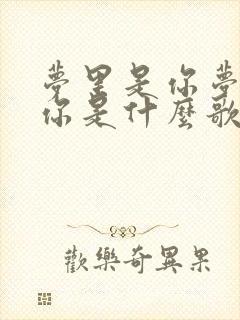 梦里是你梦
你是什麽歌
歡樂奇異果